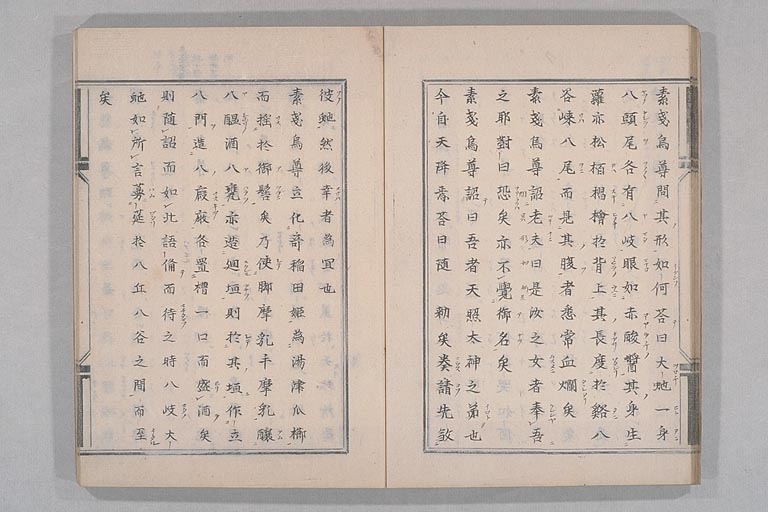 素戔烏尊問其形如何荅曰大虵一身
八頭尾各有八岐眼如赤酸醬其身生
蘿亦松栢椙檜於背上其長度於谿八
谷峡八尾而見其腹者悉常血爛矣
素戔烏尊詔老夫曰是汝之女者奉吾
之耶對曰恐矣亦不覺御名矣
素戔烏尊詔曰吾者天照太神之弟也
今自天降焉荅曰随勅矣奏請先敛
彼虵然後幸者為宜也
素戔烏尊立化奇稲田姫為湯津爪櫛
而揷於御髻矣乃使脚摩乳手摩乳釀
八醞酒八甕亦造廻垣則於其垣作立
八門造八廄廄各置槽一口而盛酒矣
則随詔而如此語俻而待之時八岐大
虵如所言蔓延於八丘八谷之間而至
矣